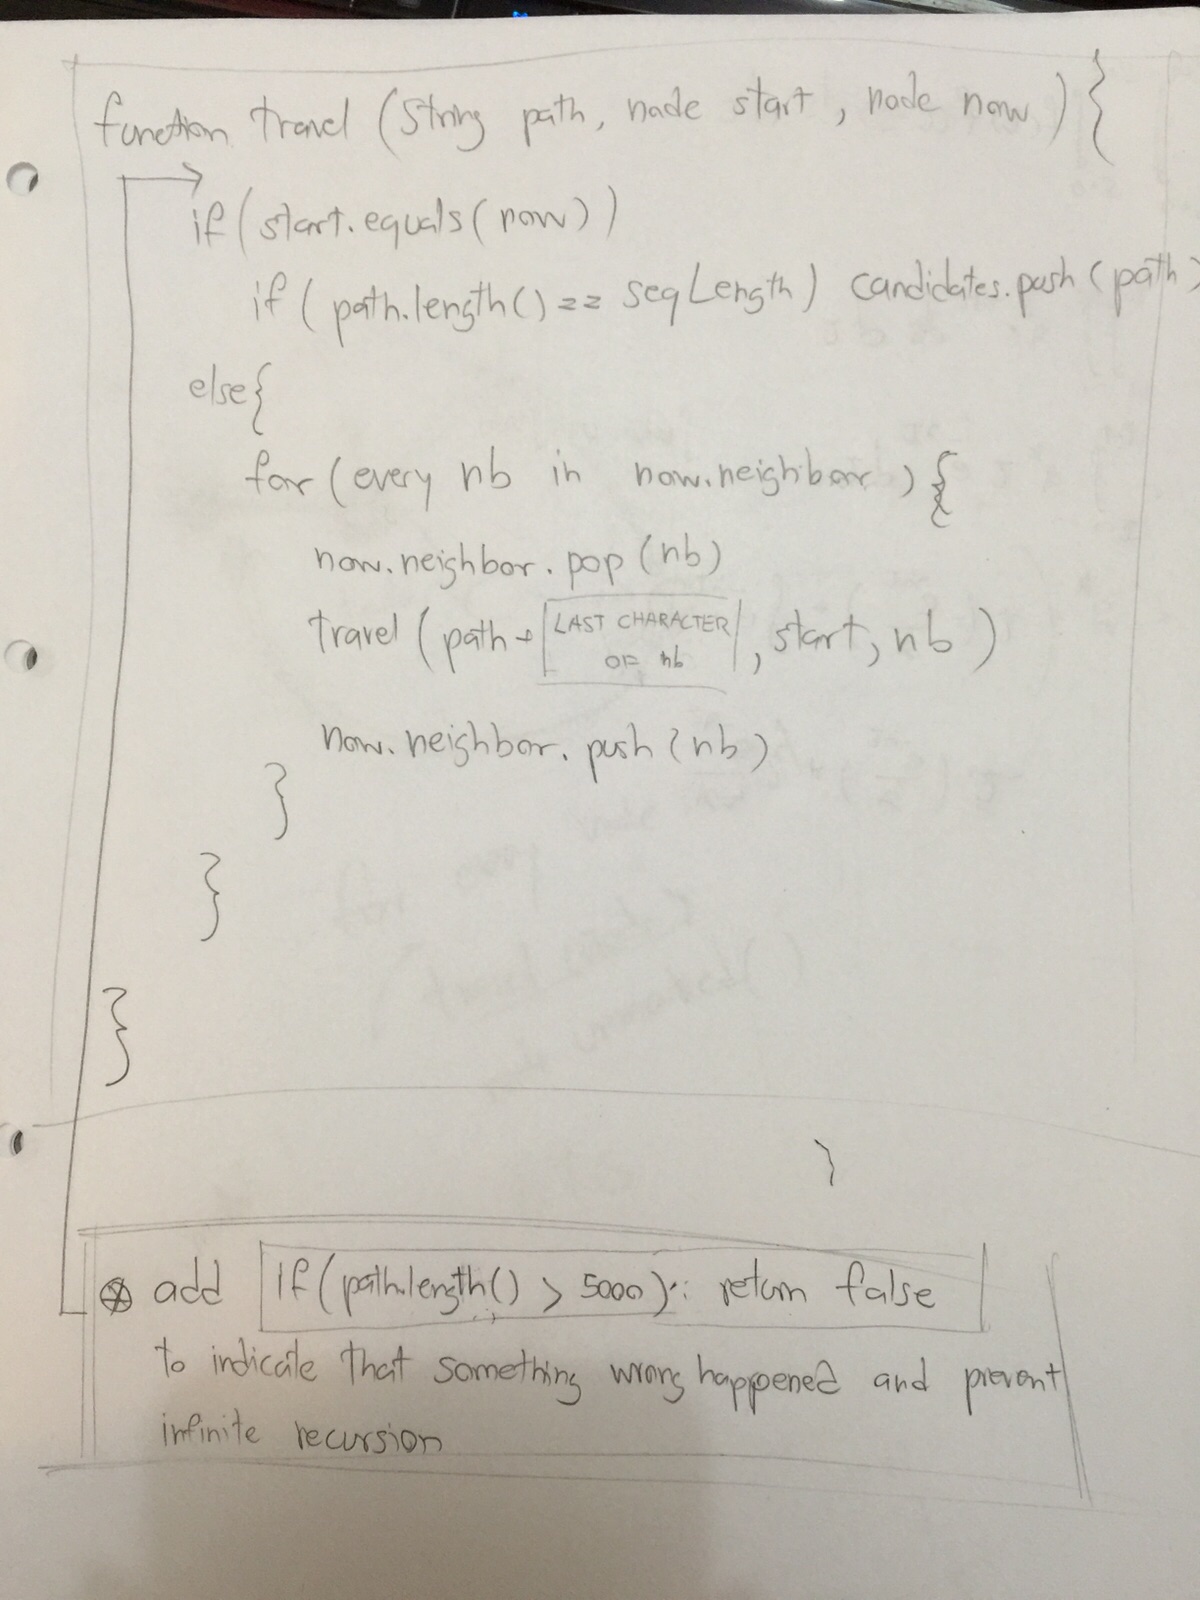 function travel (String path, node start, node now) {
if (start.equals(now))
if (path.length() == seqLength) candidates.push(path)
else{
for (every nb in now.neighbor) {
now.neighbor.pop(nb)
travel (path + LAST CHARACTER OF nb, start, nb)
now.neighbor.push(nb)
}
}
}
}
⊗ add if(path.length() > 5000): return false
to indicate that something wrong happened and prevent
infinite recursion